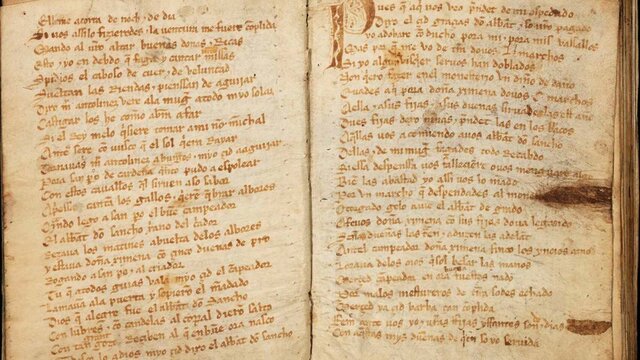 Ellame acorra de noch ⁊ de dia
Si vos assilo fizieredes ⁊ la ventura me fuere cõplida
Mando al uro altar buenas donas ⁊ Ricas
Esto ⁊ yo en debdo q̃ faga y cantar mill missas
Spidios el caboso de cuer ⁊ de veluntad
Sueltan las Riendas ⁊ pienssan de aguijar
Dixo m̃ antolinez vere ala mugr̃ atodo myo solaz
Castigar los he como abrã afar
Si el Rey melo q̃siere tomar ami nõ michal
Antes sere cõ usco q̃ el sol q̃era Rayar
Tornauas m̃ antolinez aburgos ⁊ myo çid aaguijar
Pora san pº de cardeña q̃nto pudo a espolear
Con estos cauallos q̃l siruen aso sabor
Apriessa cantã los gallos ⁊ q̃erẽ q̃brar albores
Qñdo lego a san pº el buẽ campeador
El abbat dõ sancho xp̃iano del c̃ador
Rezaua los matines abuelta delos albores
y estaua doña ximena cõ çinco dueñas de pro
Rogando a san pº ⁊ al criador
Tu q̃ atodos guias val a myo çid el cãpeador
Lamauã ala puerta y sopierõ el mãdado
Dios q̃ alegre fue el abbat dõ Sancho
Con lũbres ⁊ cõ candelas al corral dierõ salto
Con tan grãt gozo Reçiben al q̃ en buẽ ora nasco
Gradesco lo adios myo çid dixo el abbat dõ sancho
Pues q̃ aqui uos veo prẽdet de mi ospedado
Dixo el çid gr̃as dõ abbat ⁊ so uro pagado
yo adobare cõ ducho pora mi ⁊ pora mis vassallos
Mas por q̃ me vo de tr̃a douos L marchos
Si yo algũ dia visquier seruos han doblados
Non q̃ero fazer en el monesterio vn dinero de daño
Euades aq̃ pora doña ximena douos C marchos
Aella ⁊ asus fijas ⁊ asus dueñas siruades las est año
Dues fijas dexo niñas ⁊ prẽdet las en los braços
Aq̃llas vos acomiendo auos abbat dõ sancho
Dellas ⁊ de mi mugr̃ fagades todo Recabdo
Si essa despenssa vos falleçiere o vos menguare algo
Biẽ las abastad yo assi vos lo mãdo
Por vn marcho q̃ despendades al monesterio
Otorgado gelo auie el abbat de grado
Afeuos doña ximena cõ sus fijas do va legando
Señas dueñas las traẽ ⁊ aduzen las adelãt
Antel campeador doña ximena finco los ynoios amos
Loraua delos oios q̃sol besar las manos
Merçed campeador en ora buena fuestes nado
Por malos mestureros de tr̃ra sodes echado
Merçed ya çid barba tan cõplida
Fem ante vos yo ⁊ uras fijas yffantes son ⁊ de dias
Con aq̃stas mys dueñas de quien so yo seruida